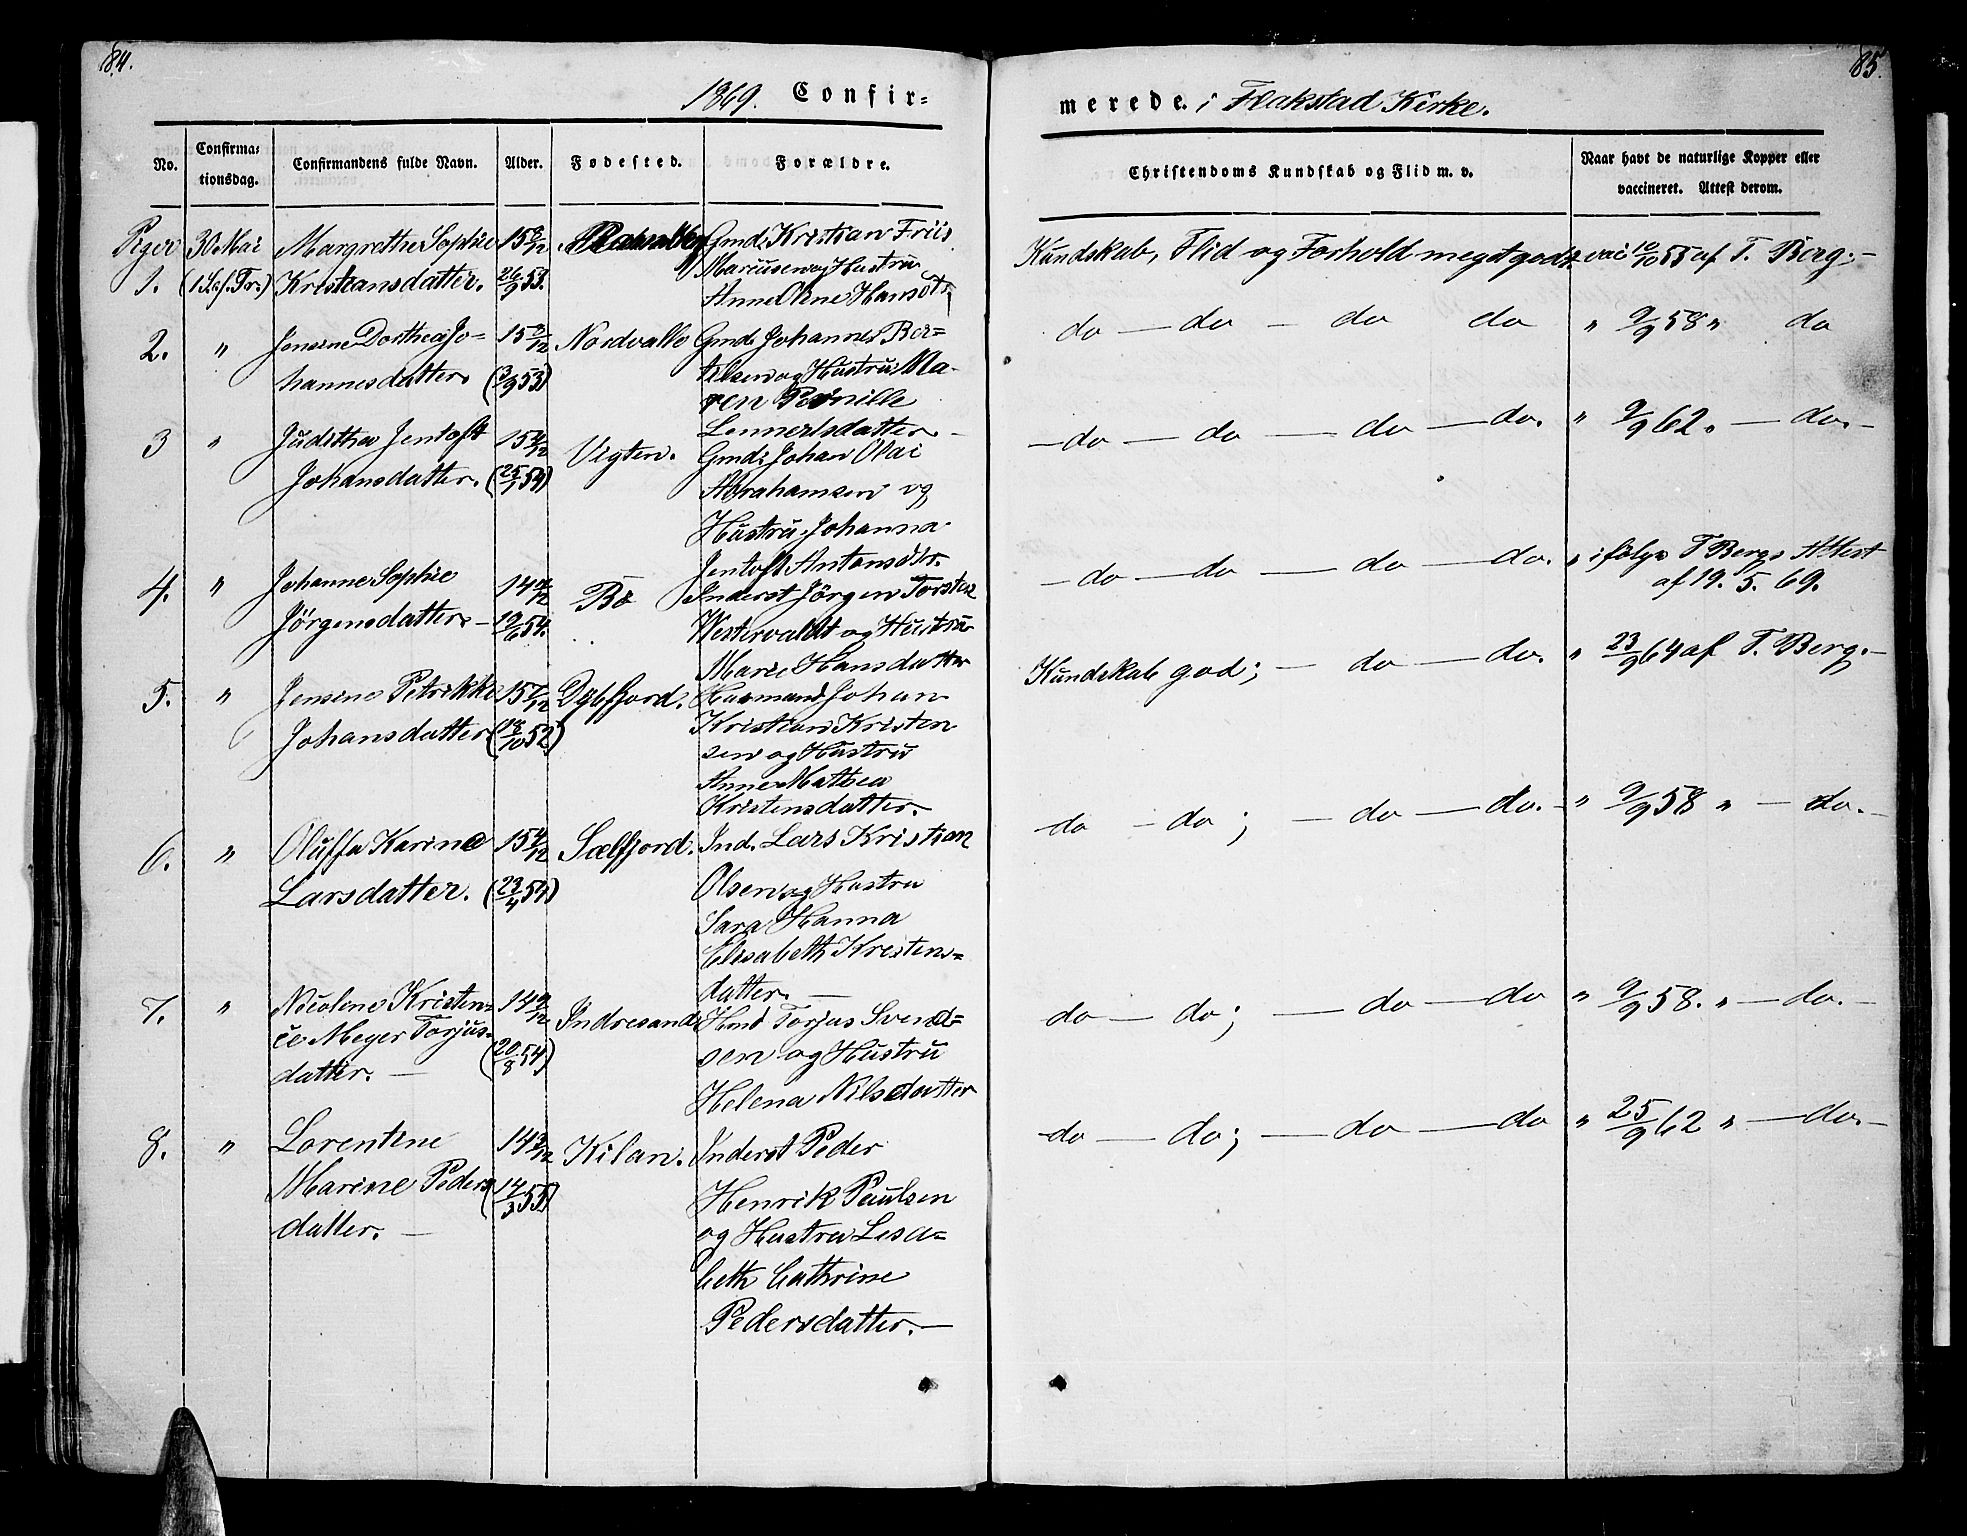 84.
85.
1869. Confir-
merede. i Flakstad Kirke.
No.
Confirma-
tionsdag.
Confirmandens fulde Navn.
Alder.
Fødested.
Forældre.
Christendoms Kundskab og Flid m. v.
Naar havt de naturlige Kopper eller
vaccineret. Attest derom.
Piger 30 Mai Margrethe Sophie 15 8/12 Gmd. Kristian Friis
1. (1 S. ef. Tr.) Kristiansdatter. 26/9 53. Mariusen og Hustru
Anne Oline Hansdtr.
Kundskab, Flid og Forhold meget godt. vac 10/10 55 af T. Berg. -
2. " Jensine Dorthea Jo- 15 8/12 Nordvalle Gmd. Johannes Ber-
hannesdatter. (3/9 53) telsen og Hustru Ma-
ren Pernille
Lennertsdatter. -
do - do - do do " 9/9 58 " do
3 " Juditha Jentoft 15 4/12 Vigten. Gmd. Johan Olai
Johansdatter. (25/1 54) Abrahamsen og
Hustru Johanna
Jentoft Antonsdtr.
- do - do - do - do. " 9/9 62. - do. -
4. " Johanne Sophie 14 11/12 Bø Inderst Jörgen Torsten
Jörgensdatter. - 19/6 54. Westervaldt og Hustru
Marie Hansdatter
- do - do - do - do. " ifølge T Bergs Attest
af 19. 5. 69.
5. " Jensine Petrikke 15 7/12 Dybfjord. Huusmand Johan
Johansdatter (18/10 52) Kristian Kristen
sen og Hustru
Anne Mathea
Kristensdatter. -
Kundskab god; - do - do. " 23/9 64 af T. Berg. -
6. " Oluffa Karine 15 4/12 Sælfjord. Ind. Lars Kristian
Larsdatter. (23/4 54) Olsen og Hustru
Sara Hanna
Elisabeth Kristens-
datter. -
do - do; - do - do. - " 9/9 58 " - do. -
7. " Nicoline Kristen- 14 9/12 Indresand Hmd Torjus Svend-
ce Meyer Torjus- (20/8 54) sen og Hustru
datter. - Helena Nilsdatter
do - do; - do - do " 9/9 58. " - do. -
8. " Lorentine 14 3/12 Kilan. Inderst Peder
Marine Peders (14/3 55) Henrik Paulsen
datter. - og Hustru Lisa-
beth Cathrine
Pedersdatter. -
do - do; - do - do " 25/9 62 " - do. -